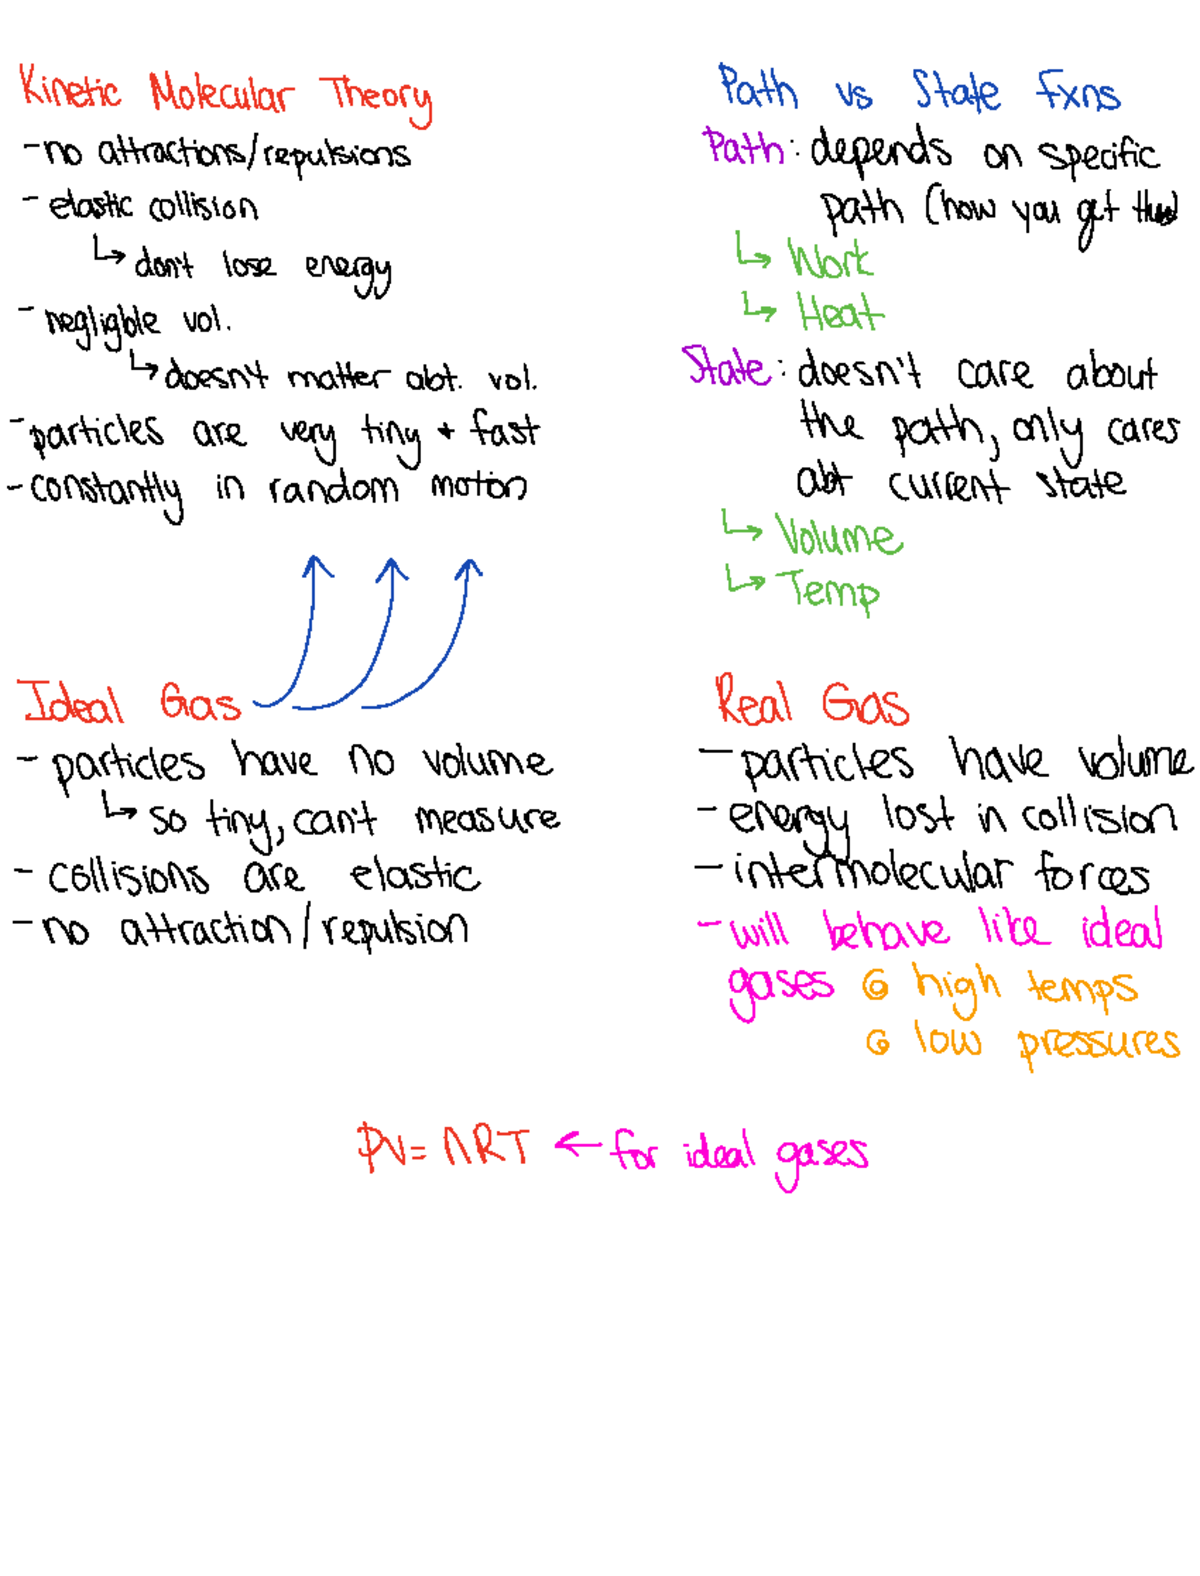 Kinetic Molecular Theory
- no attractions/repulsions
- elastic collision
↳ don't lose energy
- negligible vol.
↳ doesn't matter abt. vol.
- particles are very tiny + fast
- constantly in random motion
Path vs State Fxns
Path: depends on specific
path (how you get
↳ Work
↳ Heat
State: doesn't care about
the path, only cares
abt current state
↳ Volume
↳ Temp
Ideal Gas
- particles have no volume
↳ so tiny, can't measure
- collisions are elastic
- no attraction/repulsion
Real Gas
- particles have volume
- energy lost in collision
- intermolecular forces
- will behave like ideal
gases @ high temps
@ low pressures
PV = nRT ← for ideal gases